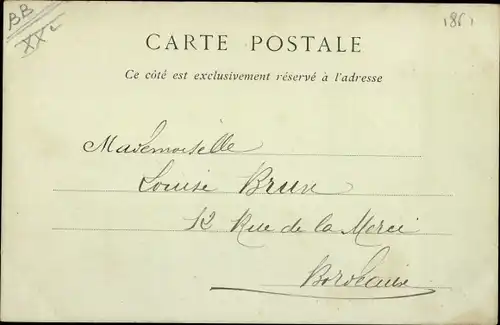 BB
XXe
181
CARTE POSTALE
Ce côté est exclusivement réservé à l'adresse
Mademoiselle
Louise Brun
12 Rue de la Merci
Bordeaux